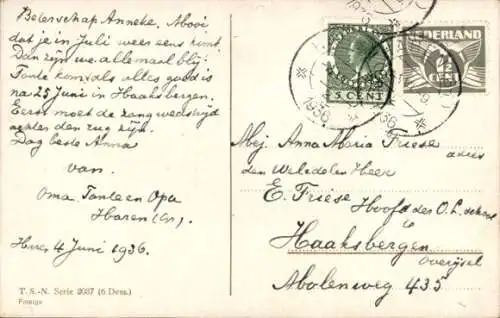 Beterschap Anneke. Mooi
dat je in Juli weer eens komt.
Dan zijn we allemaal blij.
Tante komt als alles goed is
na 25 Juni in Haaksbergen.
Eerst moet de zangwedstrijd
achter den rug zijn.
Dag beste Anna
van.
Oma Tante en Opa
Haren (Gr.)
4 Juni 1936.
T. S.-N. Serie 2037 (6 Dess.)
Foreign
NEDERLAND
5 CENT
2½
CENT
1936
Mej. Anna Maria Friese
adres
den Weledelen Heer
E. Friese Hoofd der O.L. school
te
Haaksbergen
Overijsel
Molenweg 435